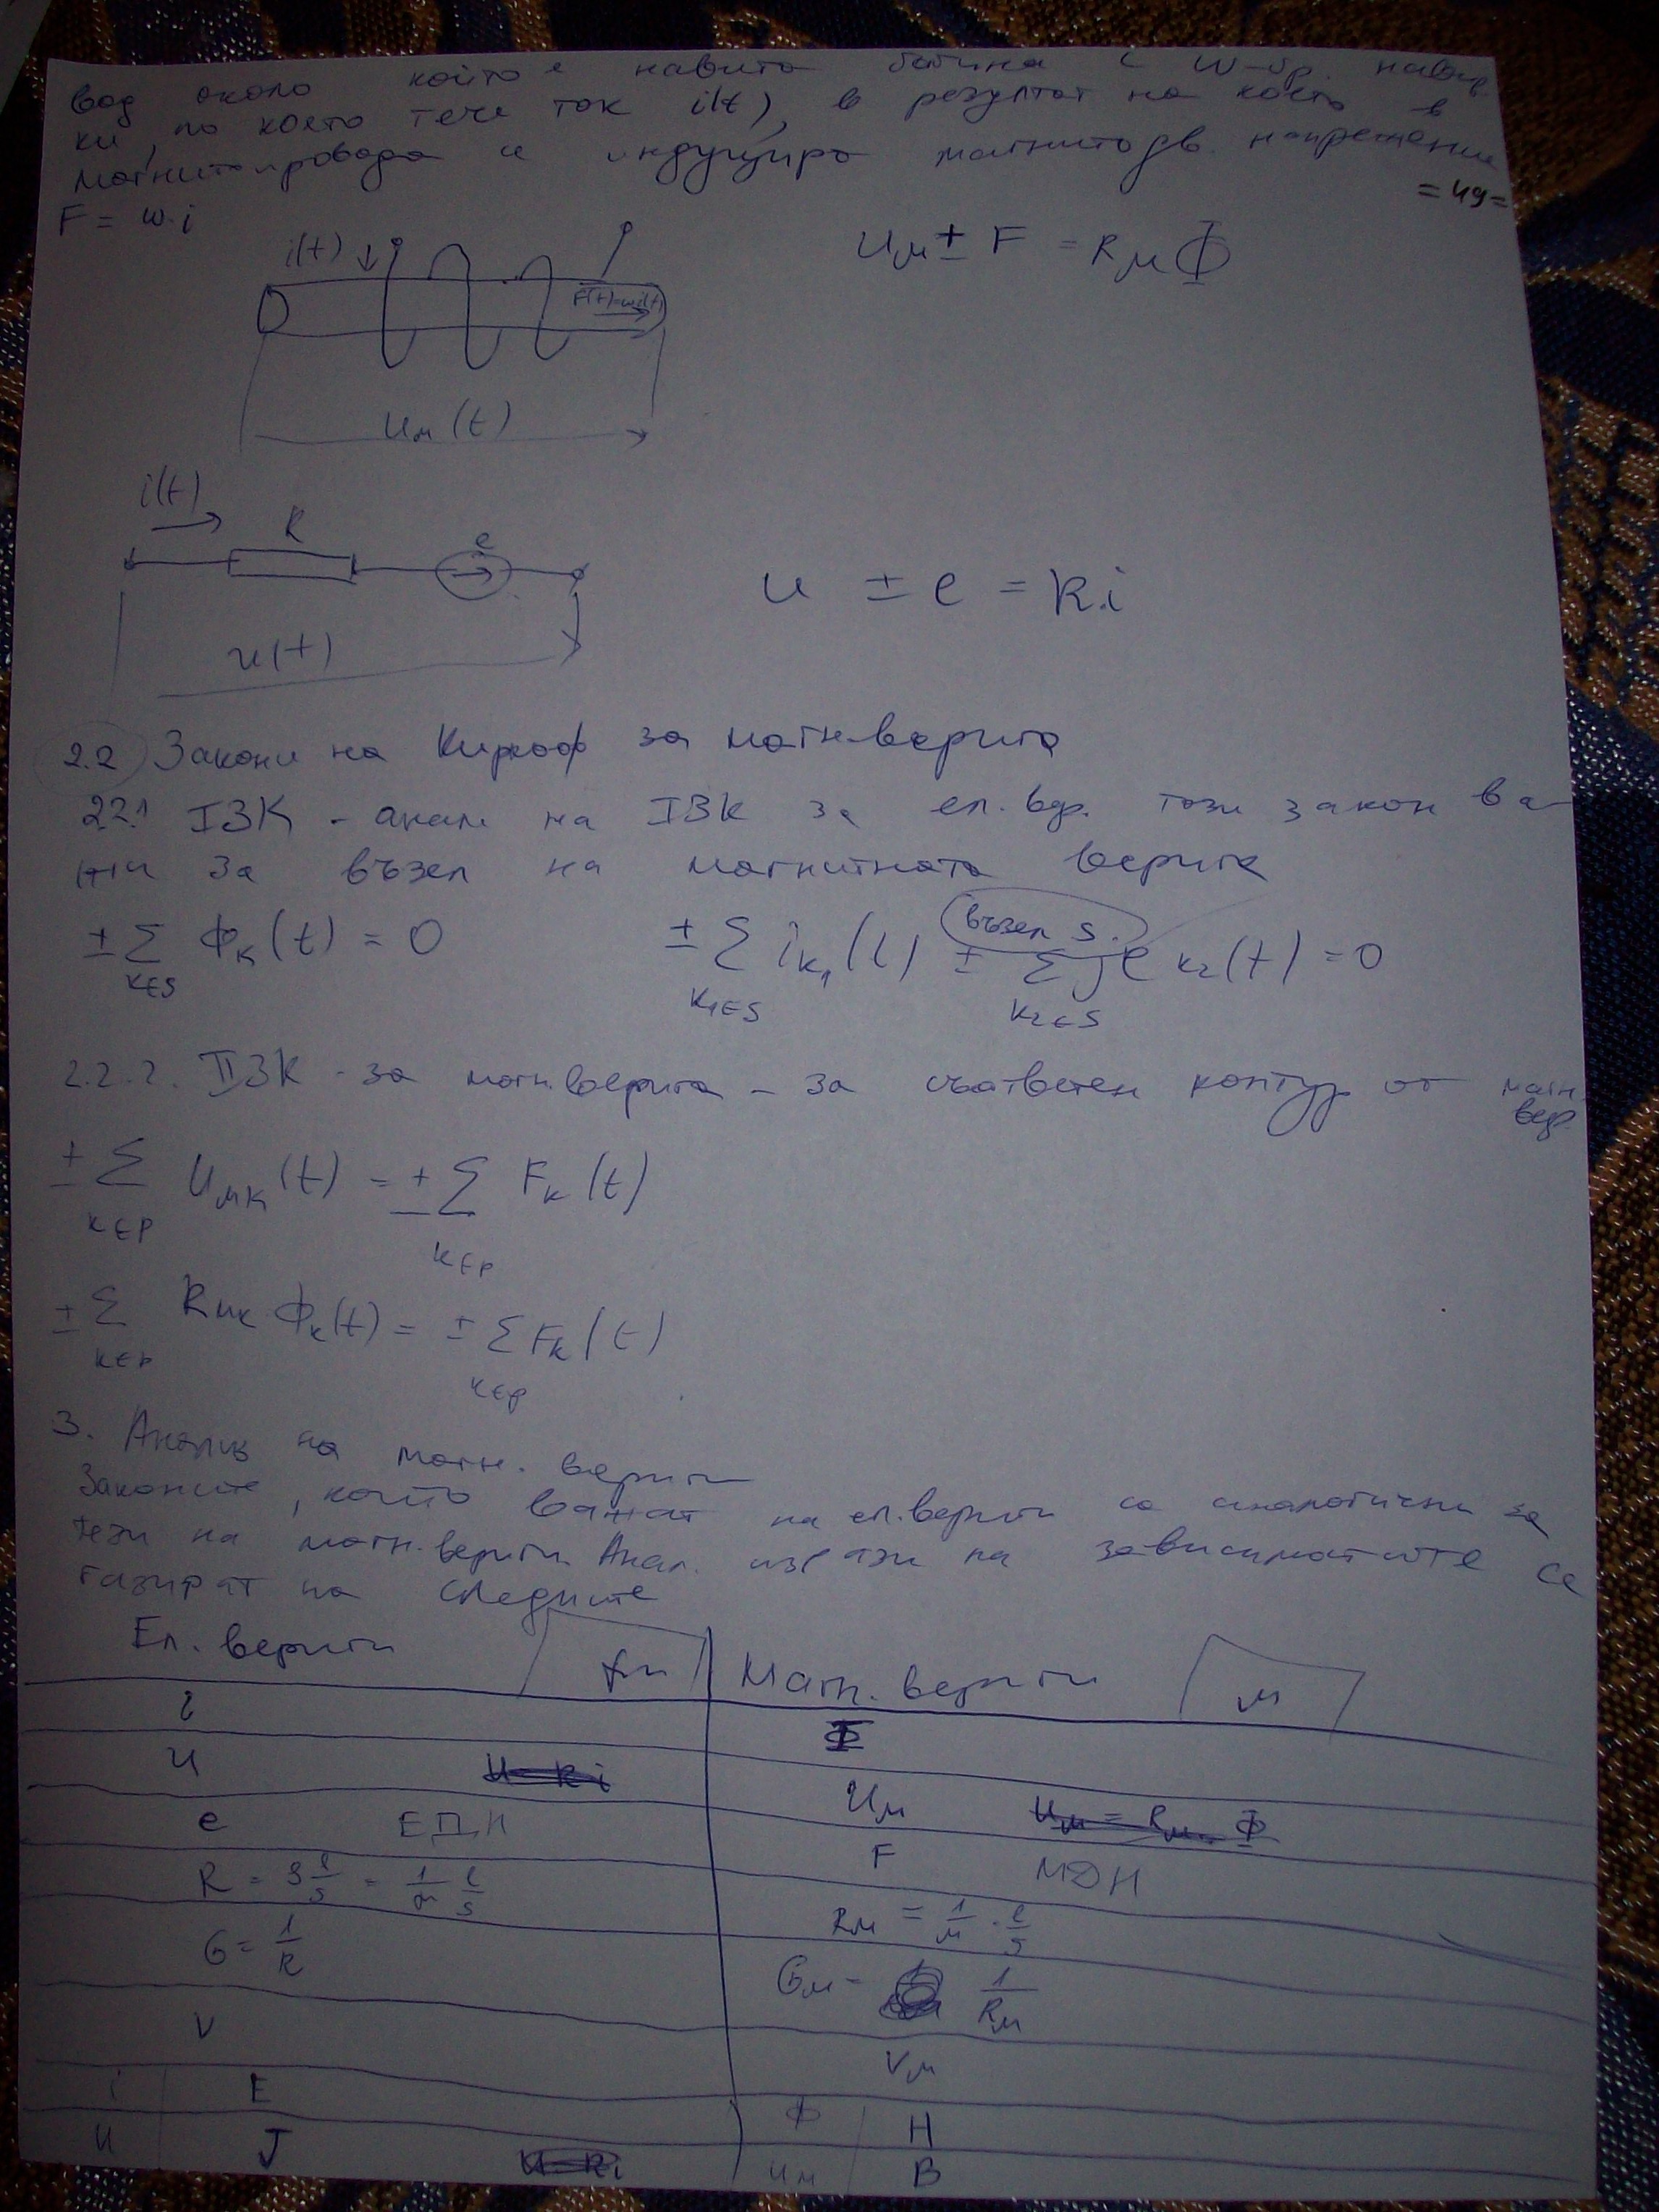 вод около който е навита бобина с w-бр. навив-
ки, по която тече ток i(t), в резултат на което в
магнитопровода се индуцира магнитодв. напрежение
= 49 =
F = w.i
i(t)
F(t)=wi(t)
Uм ± F = Rм Φ
Uм(t)
i(t)
R
e
u ± e = R.i
u(t)
2.2 Закони на Кирхоф за магн. верига
2.2.1 IЗК - анал на IЗК за ел. вер. този закон ва-
жи за възел на магнитната верига
възел s.
± Σ Φк(t) = 0 ± Σ iк1(t) ± Σ Jeк2(t) = 0
к∈s к1∈s к2∈s
2.2.2. IIЗК - за магн. верига - за съответен контур от магн.
вер.
± Σ Uмк(t) = ± Σ Fк(t)
к∈p к∈p
± Σ Rмк Φк(t) = ± Σ Fк(t)
к∈p к∈p
3. Анализ на магн. вериги
Законите, който важат на ел. вериги са аналогични за
тези на магн. вериги. Анал. изрази на зависимостите се
базират на следните
Ел. вериги Магн. вериги м
i Φ
u U=Ri Uм Uм = Rм . Φ
e ЕДН F МДН
R = ρ l/s = 1/σ l/s Rм = 1/μ . l/s
G = 1/R Gм = 1/Rм
V Vм
i E Φ H
u J U=Ri Uм B